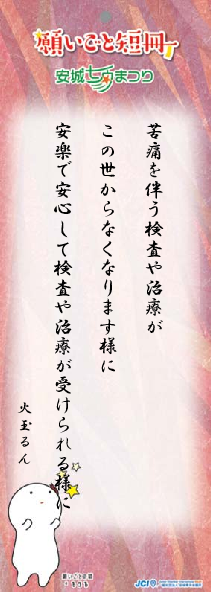 願いごと短冊
安城七夕まつり
苦痛を伴う検査や治療が
この世からなくなります様に
安楽で安心して検査や治療が受けられる様に
火玉るん
願いごと短冊
JCI